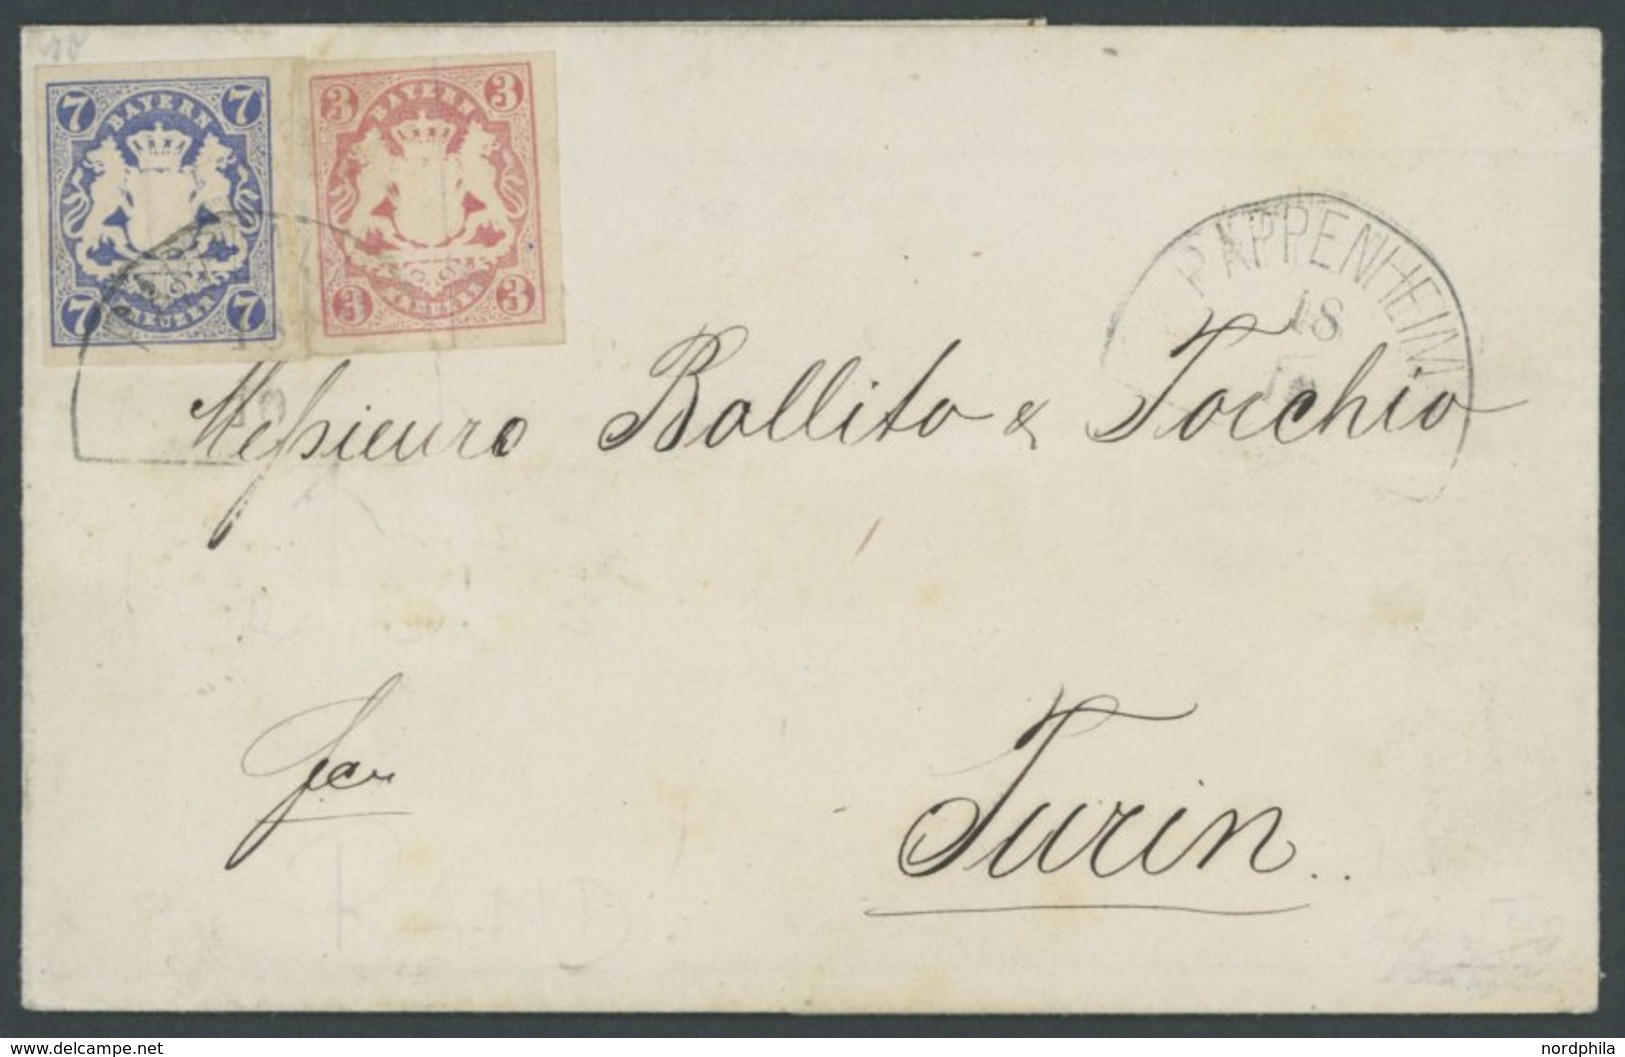 10
7 7
BAYERN
7 7
KREUZER
3 3
BAYERN
3 3
KREUZER
PAPPENHEIM
18
Messieurs Ballito & Tocchio
per
Turin..
delcampe.net
nordphila